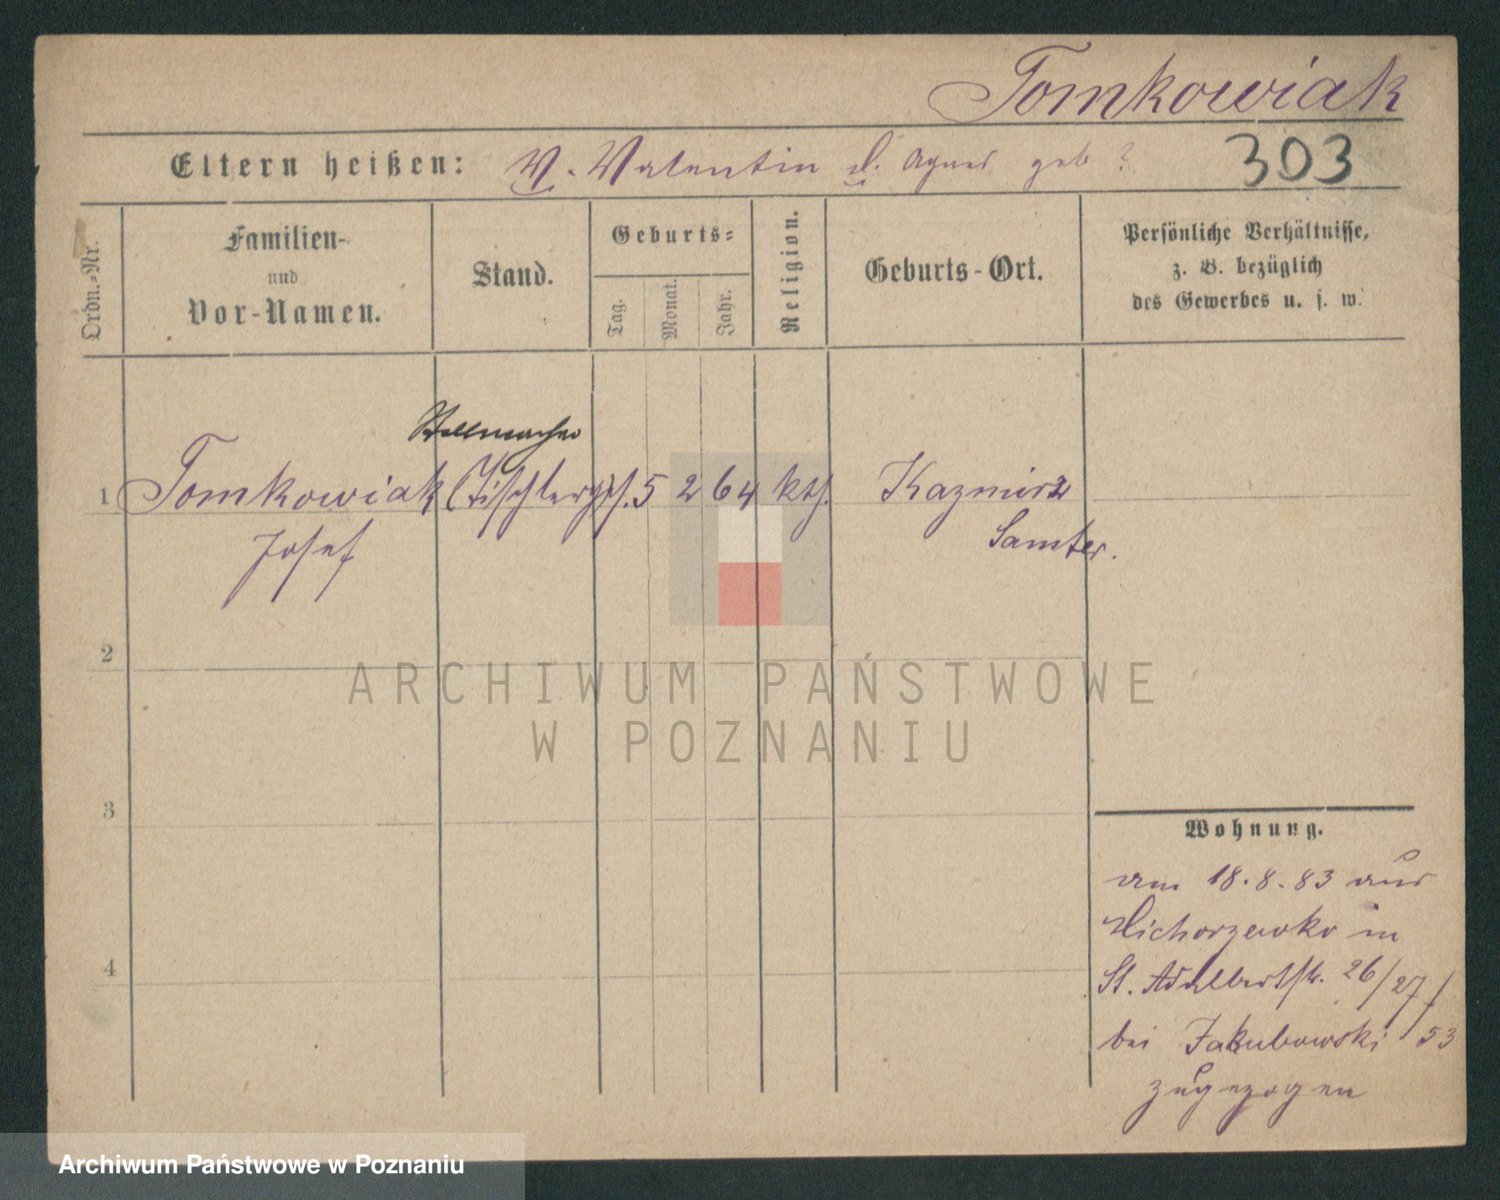 Tomkowiak
Eltern heißen: V. Valentin d. Agnes geb ? 303
Ordn.-Nr.
Familien-
und
Vor-Namen.
Stand.
Geburts-
Tag.
Monat.
Jahr.
Religion.
Geburts-Ort.
Persönliche Verhältnisse,
z. B. bezüglich
des Gewerbes u. s. w.
Stellmacher
1 Tomkowiak (Tischlerges. 5 2 64 kth. Kazmirz
Josef Samter.
2
ARCHIWUM PAŃSTWOWE
W POZNANIU
3
Wohnung.
am 18.8.83 aus
in
4
St. Adalbertstr. 26/27/
bei Jakubowski 53
zugezogen
Archiwum Państwowe w Poznaniu